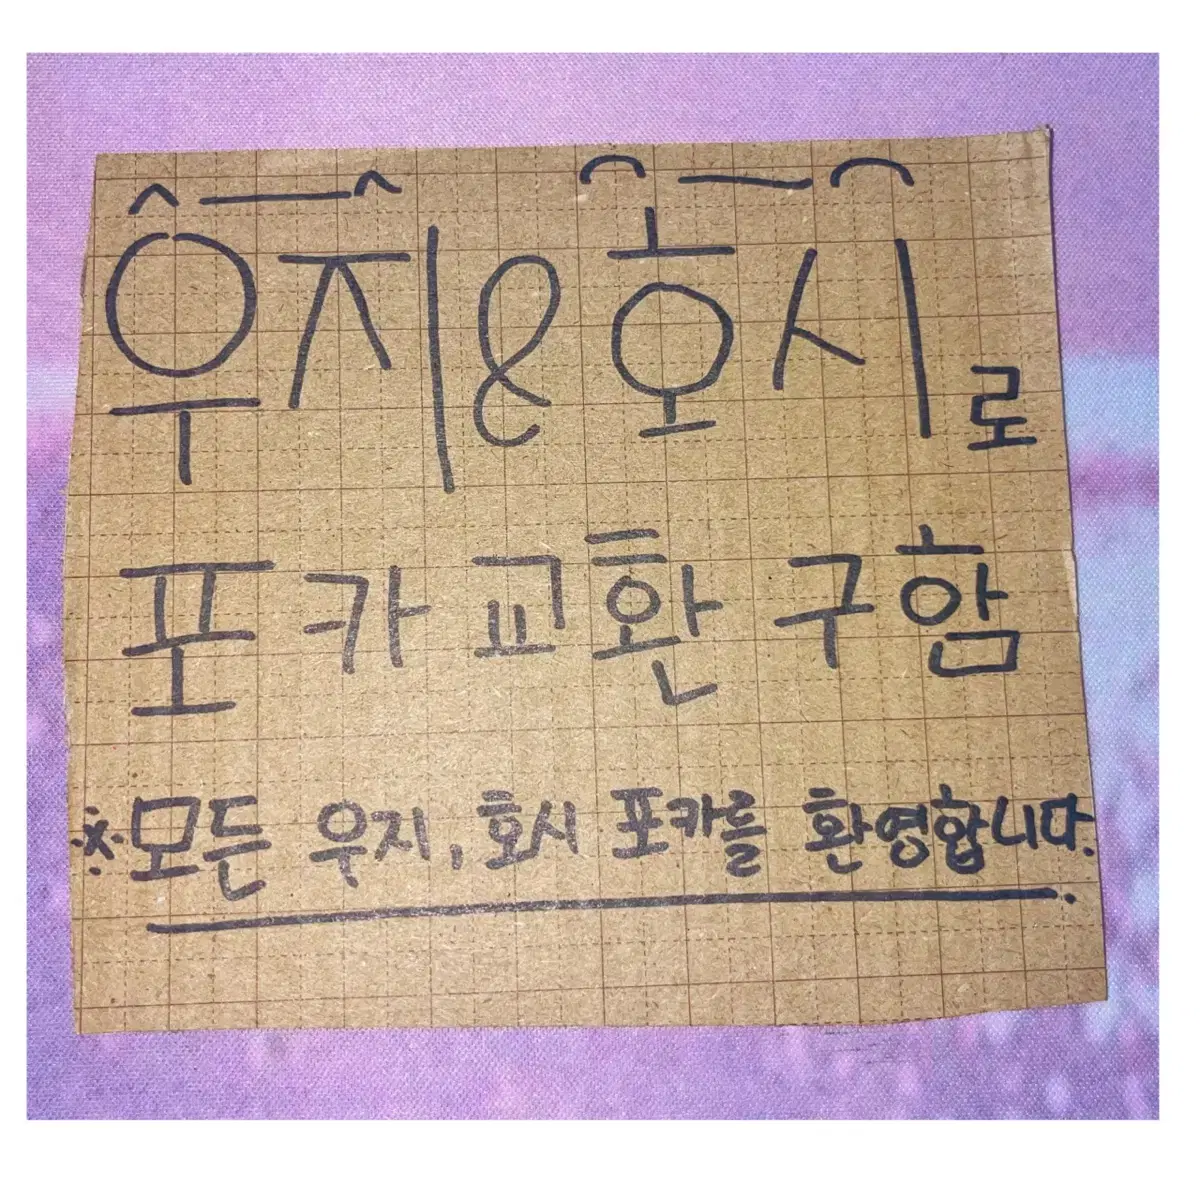 우지&호시로
포카 교환 구함
※모든 우지, 호시 포카를 환영합니다.